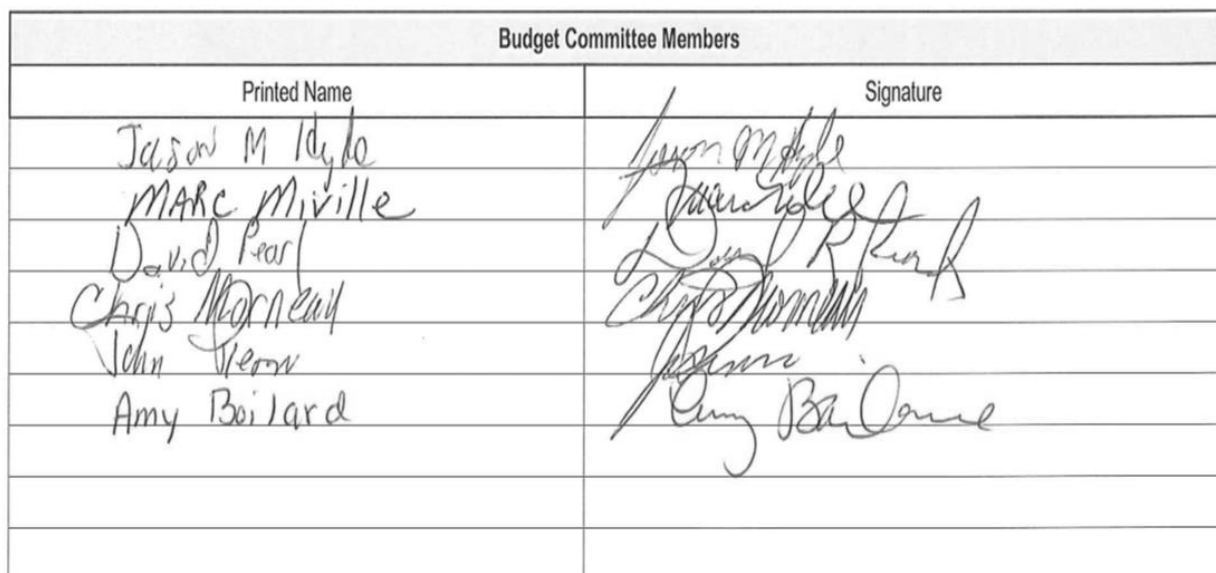 Budget Committee Members
Printed Name Signature
Jason M Hyde
MARC Miville
David Pearl David R Pearl
Chris Morneau Chris Morneau
John
Amy Boilard Amy Boilard